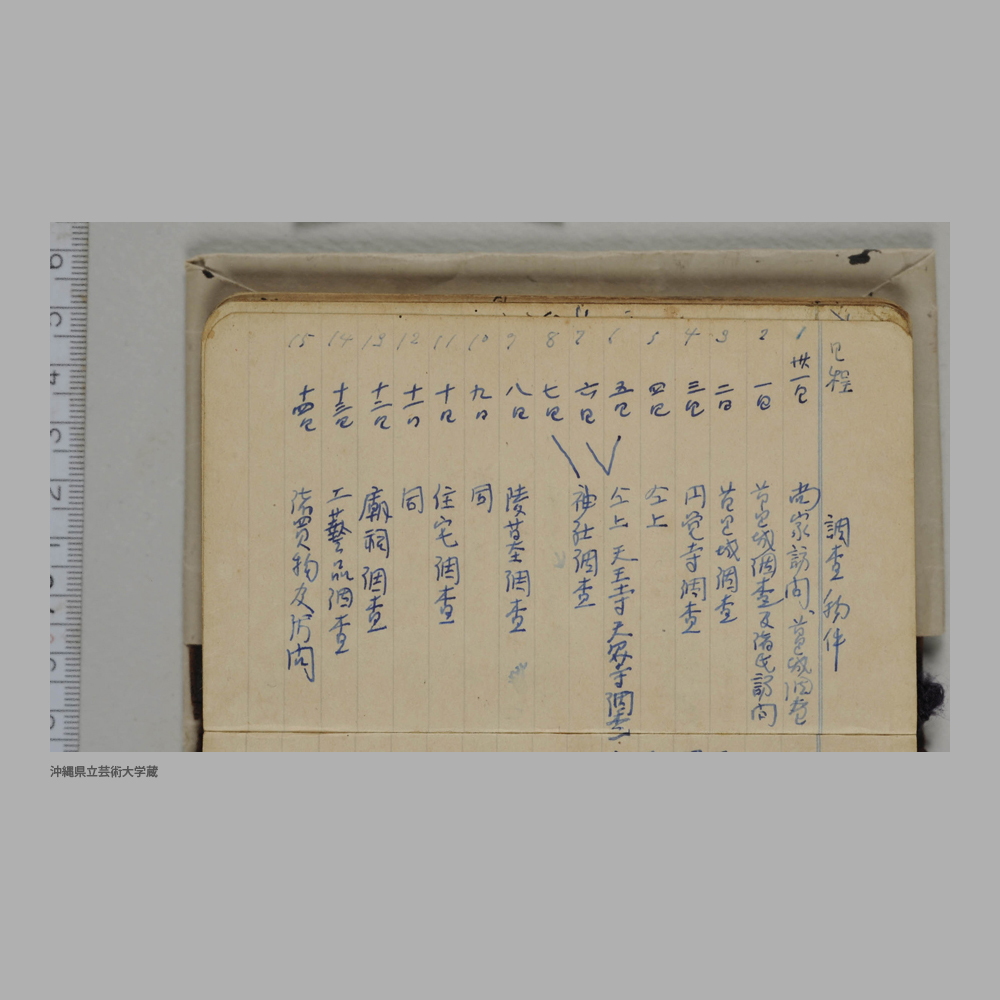 日程 調査物件
1 卅一日 尚家訪問、首里城調査
2 一日 首里城調査及諸氏訪問
3 二日 首里城調査
4 三日 円覚寺調査
5 四日 仝上
6 五日 仝上 天王寺 天界寺調査
7 六日 神社調査
8 七日
9 八日 陵墓調査
10 九日 同
11 十日 住宅調査
12 十一日 同
13 十二日 廟祠調査
14 十三日 工藝品調査
15 十四日 諸買物及訪問
沖縄県立芸術大学蔵